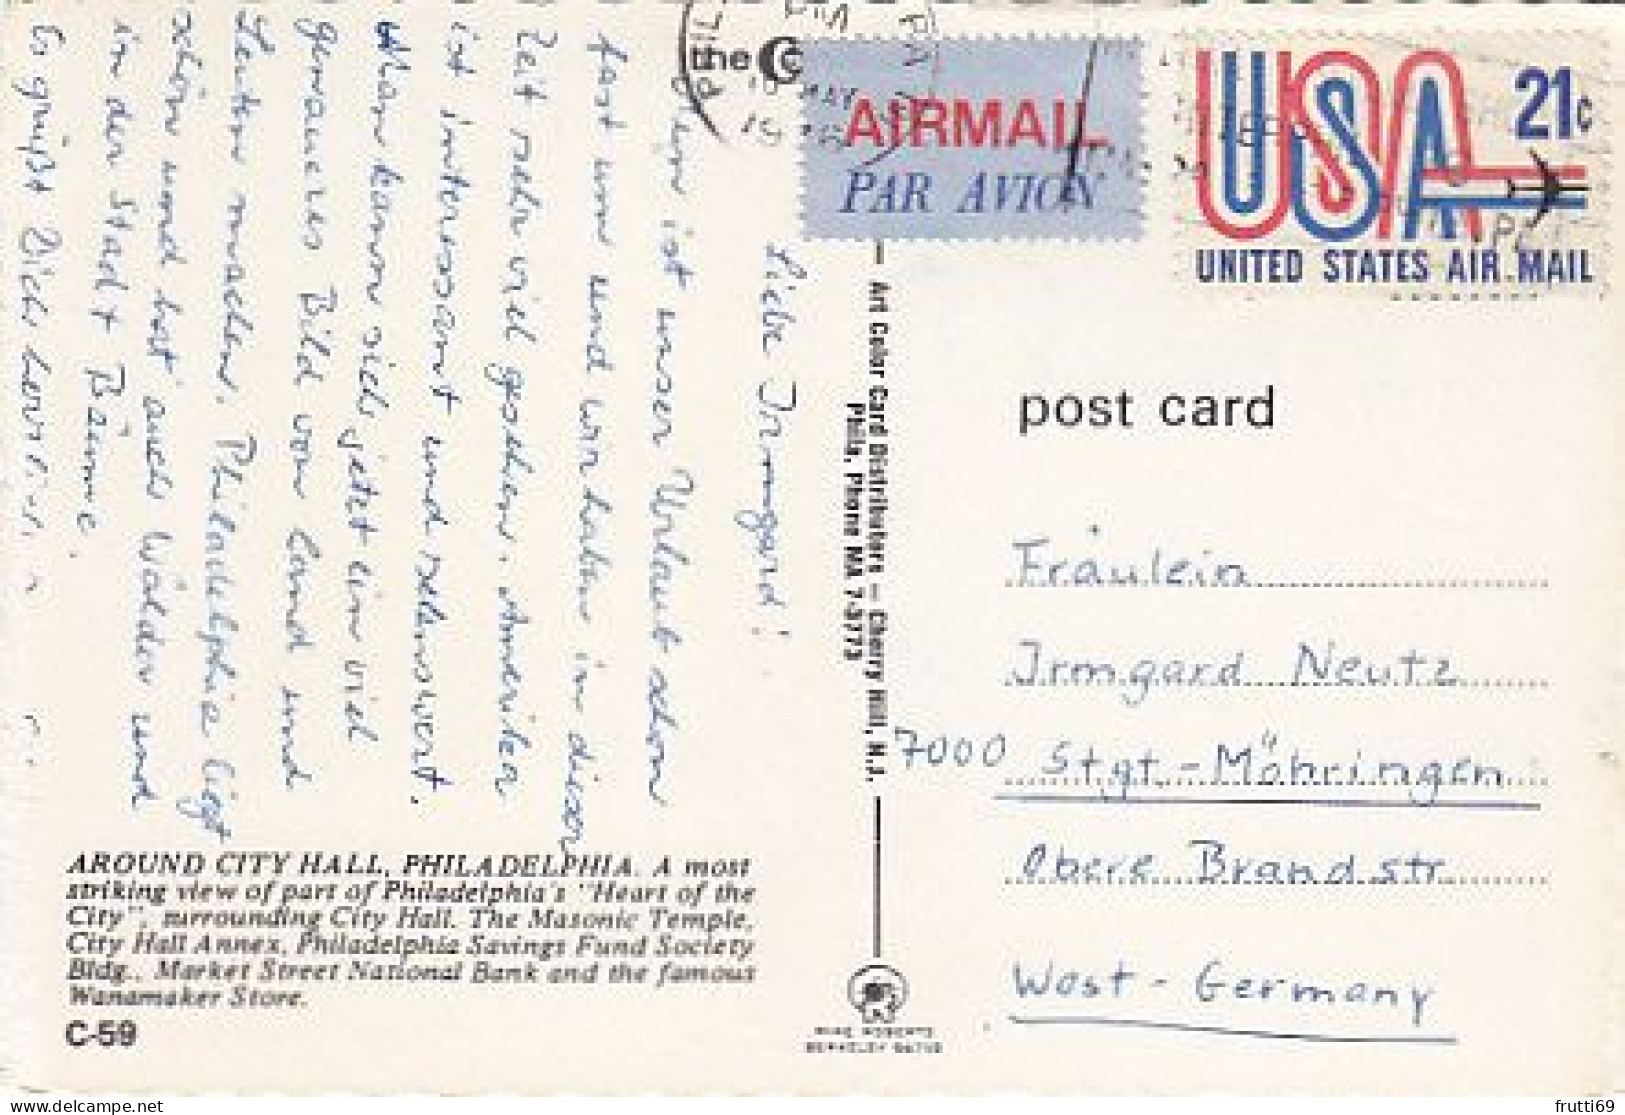 Liebe Irmgard!
ist unser Urlaub schon
fast um und wir haben in dieser
Zeit sehr viel gesehen. Amerika
ist interessant und sehenswert.
Man kann sich jetzt ein viel
genaueres Bild von Land und
Leuten machen. Philadelphia liegt
schön und hat auch Wälder und
in der Stadt Bäume.
Es grüßt Dich
AROUND CITY HALL, PHILADELPHIA. A most
striking view of part of Philadelphia's "Heart of the
City", surrounding City Hall. The Masonic Temple,
City Hall Annex, Philadelphia Savings Fund Society
Bldg., Market Street National Bank and the famous
Wanamaker Store.
C-59
the
AIRMAIL
PAR AVION
PHIL
MAY
PA
USA
21c
UNITED STATES AIR MAIL
Art Color Card Distributors – Cherry Hill, N.J.
Phila. Phone WA 7-3773
MIKE ROBERTS
BERKELEY
post card
Fräulein
Irmgard Neutz
7000 Stgt-Möhringen
Obere Brandstr
West-Germany
frutti69
© delcampe.net